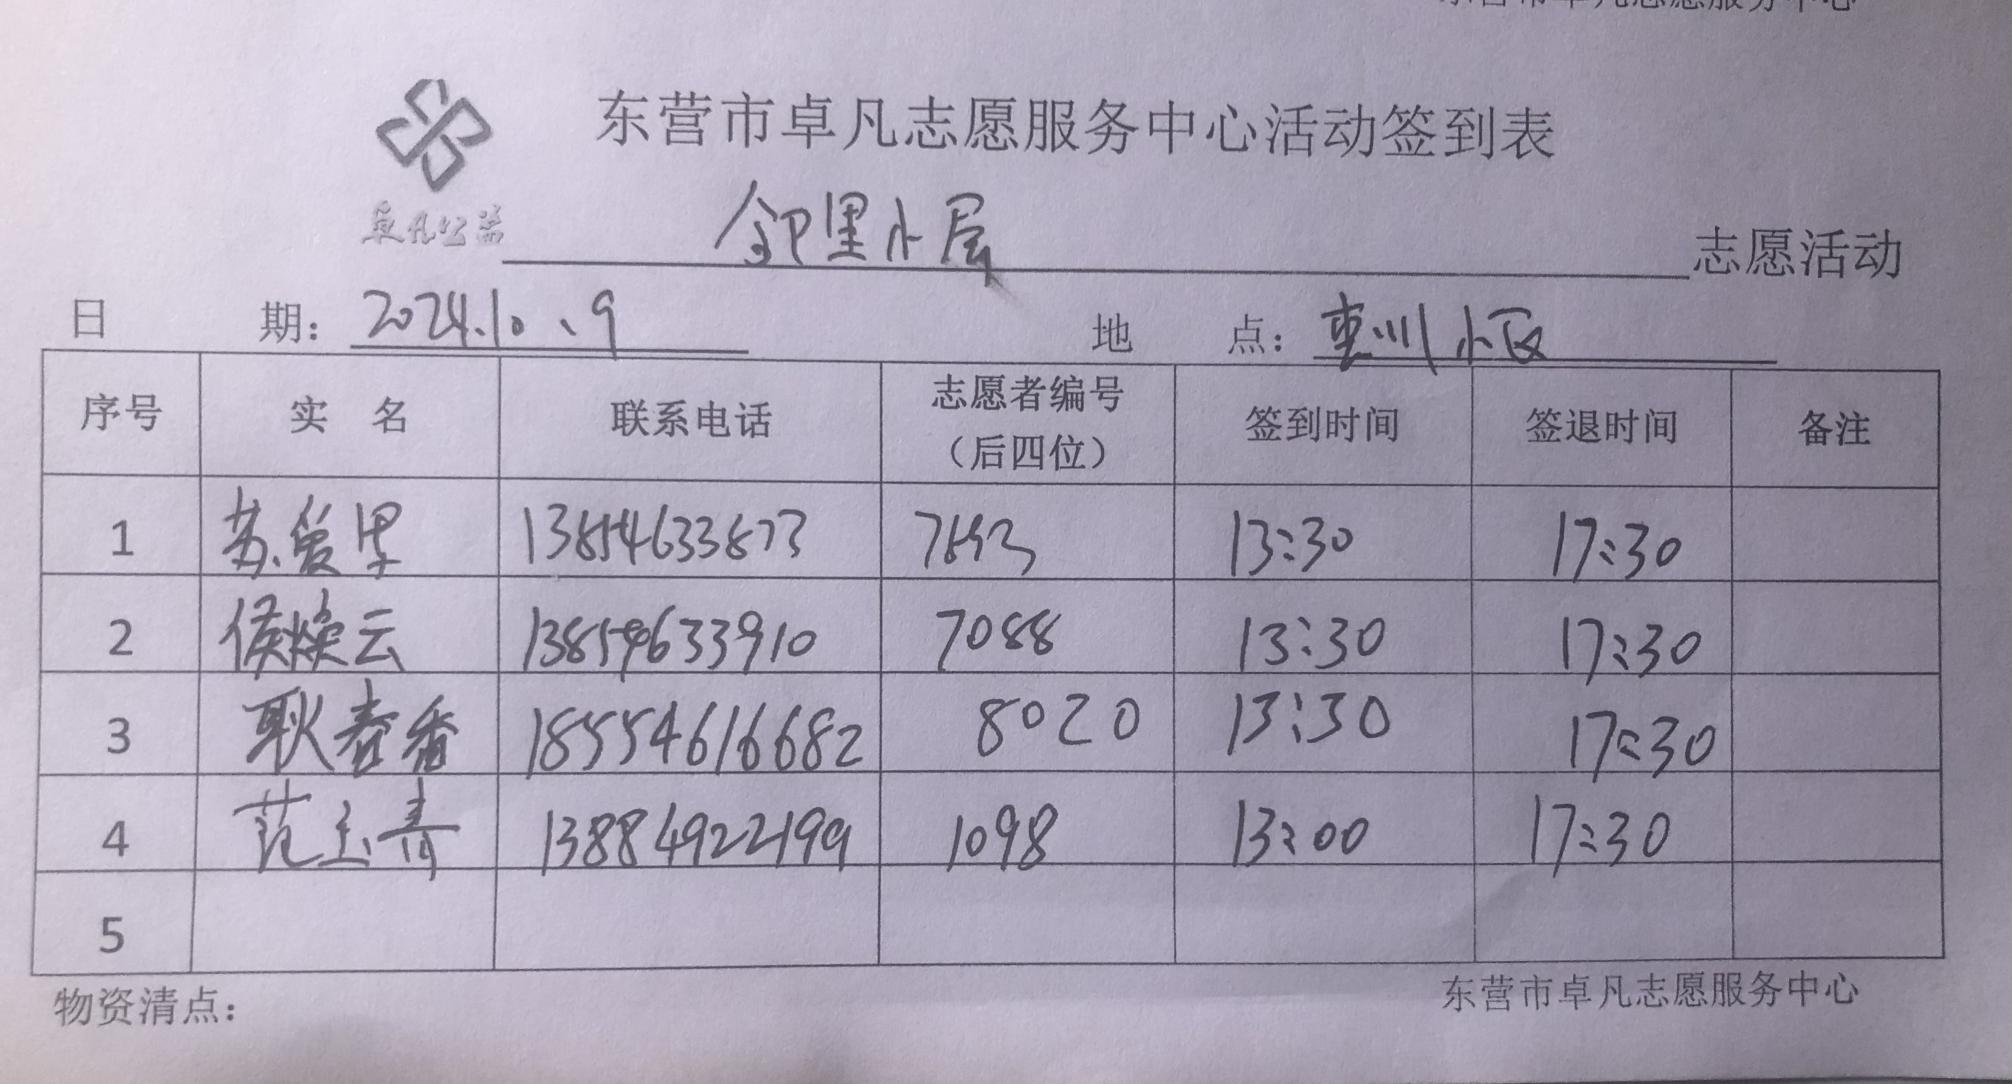 东营市卓凡志愿服务中心
东营市卓凡志愿服务中心活动签到表
卓凡公益
邻里小屋 志愿活动
日 期: 2024.10、9 地 点: 惠州小区
序号 实 名 联系电话 志愿者编号（后四位） 签到时间 签退时间 备注
1 苏爱 13854633873 13:30 17:30
2 侯焕云 13854633910 7088 13:30 17:30
3 耿春香 18554616682 8020 13:30 17:30
4 范玉青 13884922199 1098 13:00 17:30
5
物资清点: 东营市卓凡志愿服务中心